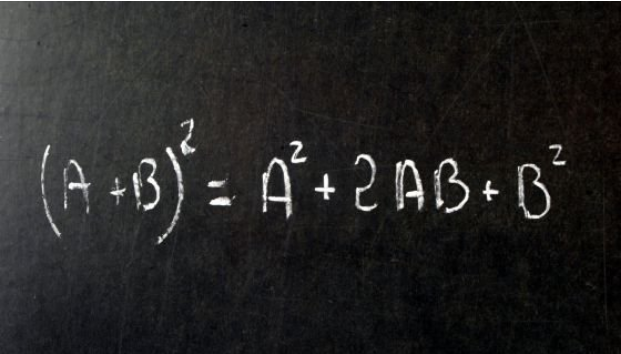 (A+B)² = A² + 2AB + B²